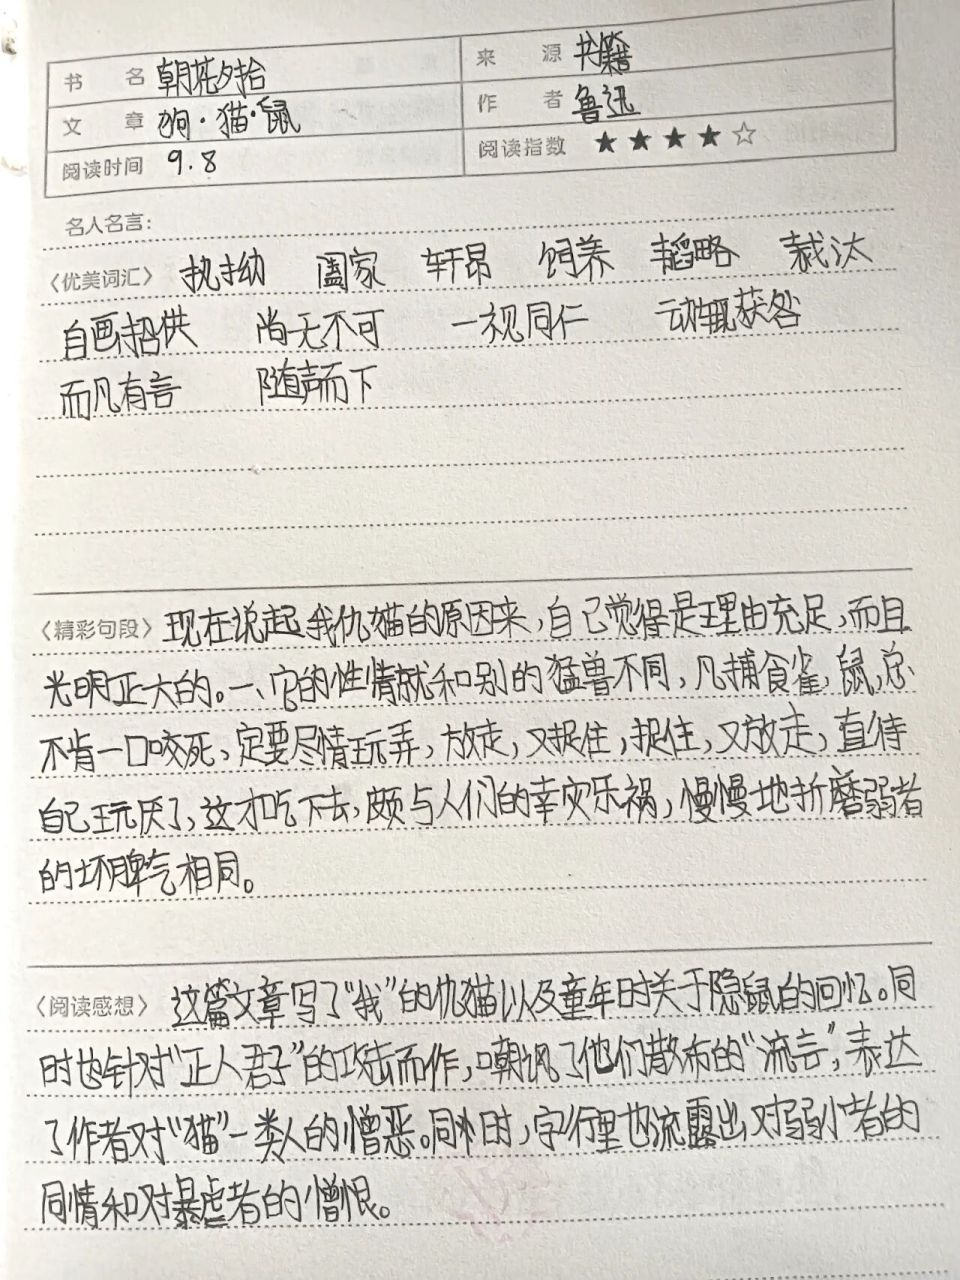 书 名 朝花夕拾 来 源 书籍
文 章 狗·猫·鼠 作 者 鲁迅
阅读时间 9.8 阅读指数 ★★★★☆
名人名言:
〈优美词汇〉 执拗 阖家 轩昂 饲养 韬略 裁汰
自画招供 尚无不可 一视同仁 动辄获咎
而凡有言 随声而下
〈精彩句段〉 现在说起我仇猫的原因来,自己觉得是理由充足,而且
光明正大的。一、它的性情就和别的猛兽不同,凡捕食雀,鼠,总
不肯一口咬死,定要尽情玩弄,放走,又捉住,捉住,又放走,直待
自己玩厌了,这才吃下去,颇与人们的幸灾乐祸,慢慢地折磨弱者
的坏脾气相同。
〈阅读感想〉 这篇文章写了“我”的仇猫以及童年时关于隐鼠的回忆。同
时也针对“正人君子”的攻击而作,嘲讽了他们散布的“流言”,表达
了作者对“猫”一类人的憎恶。同时,字行里也流露出对弱小者的
同情和对暴虐者的憎恨。